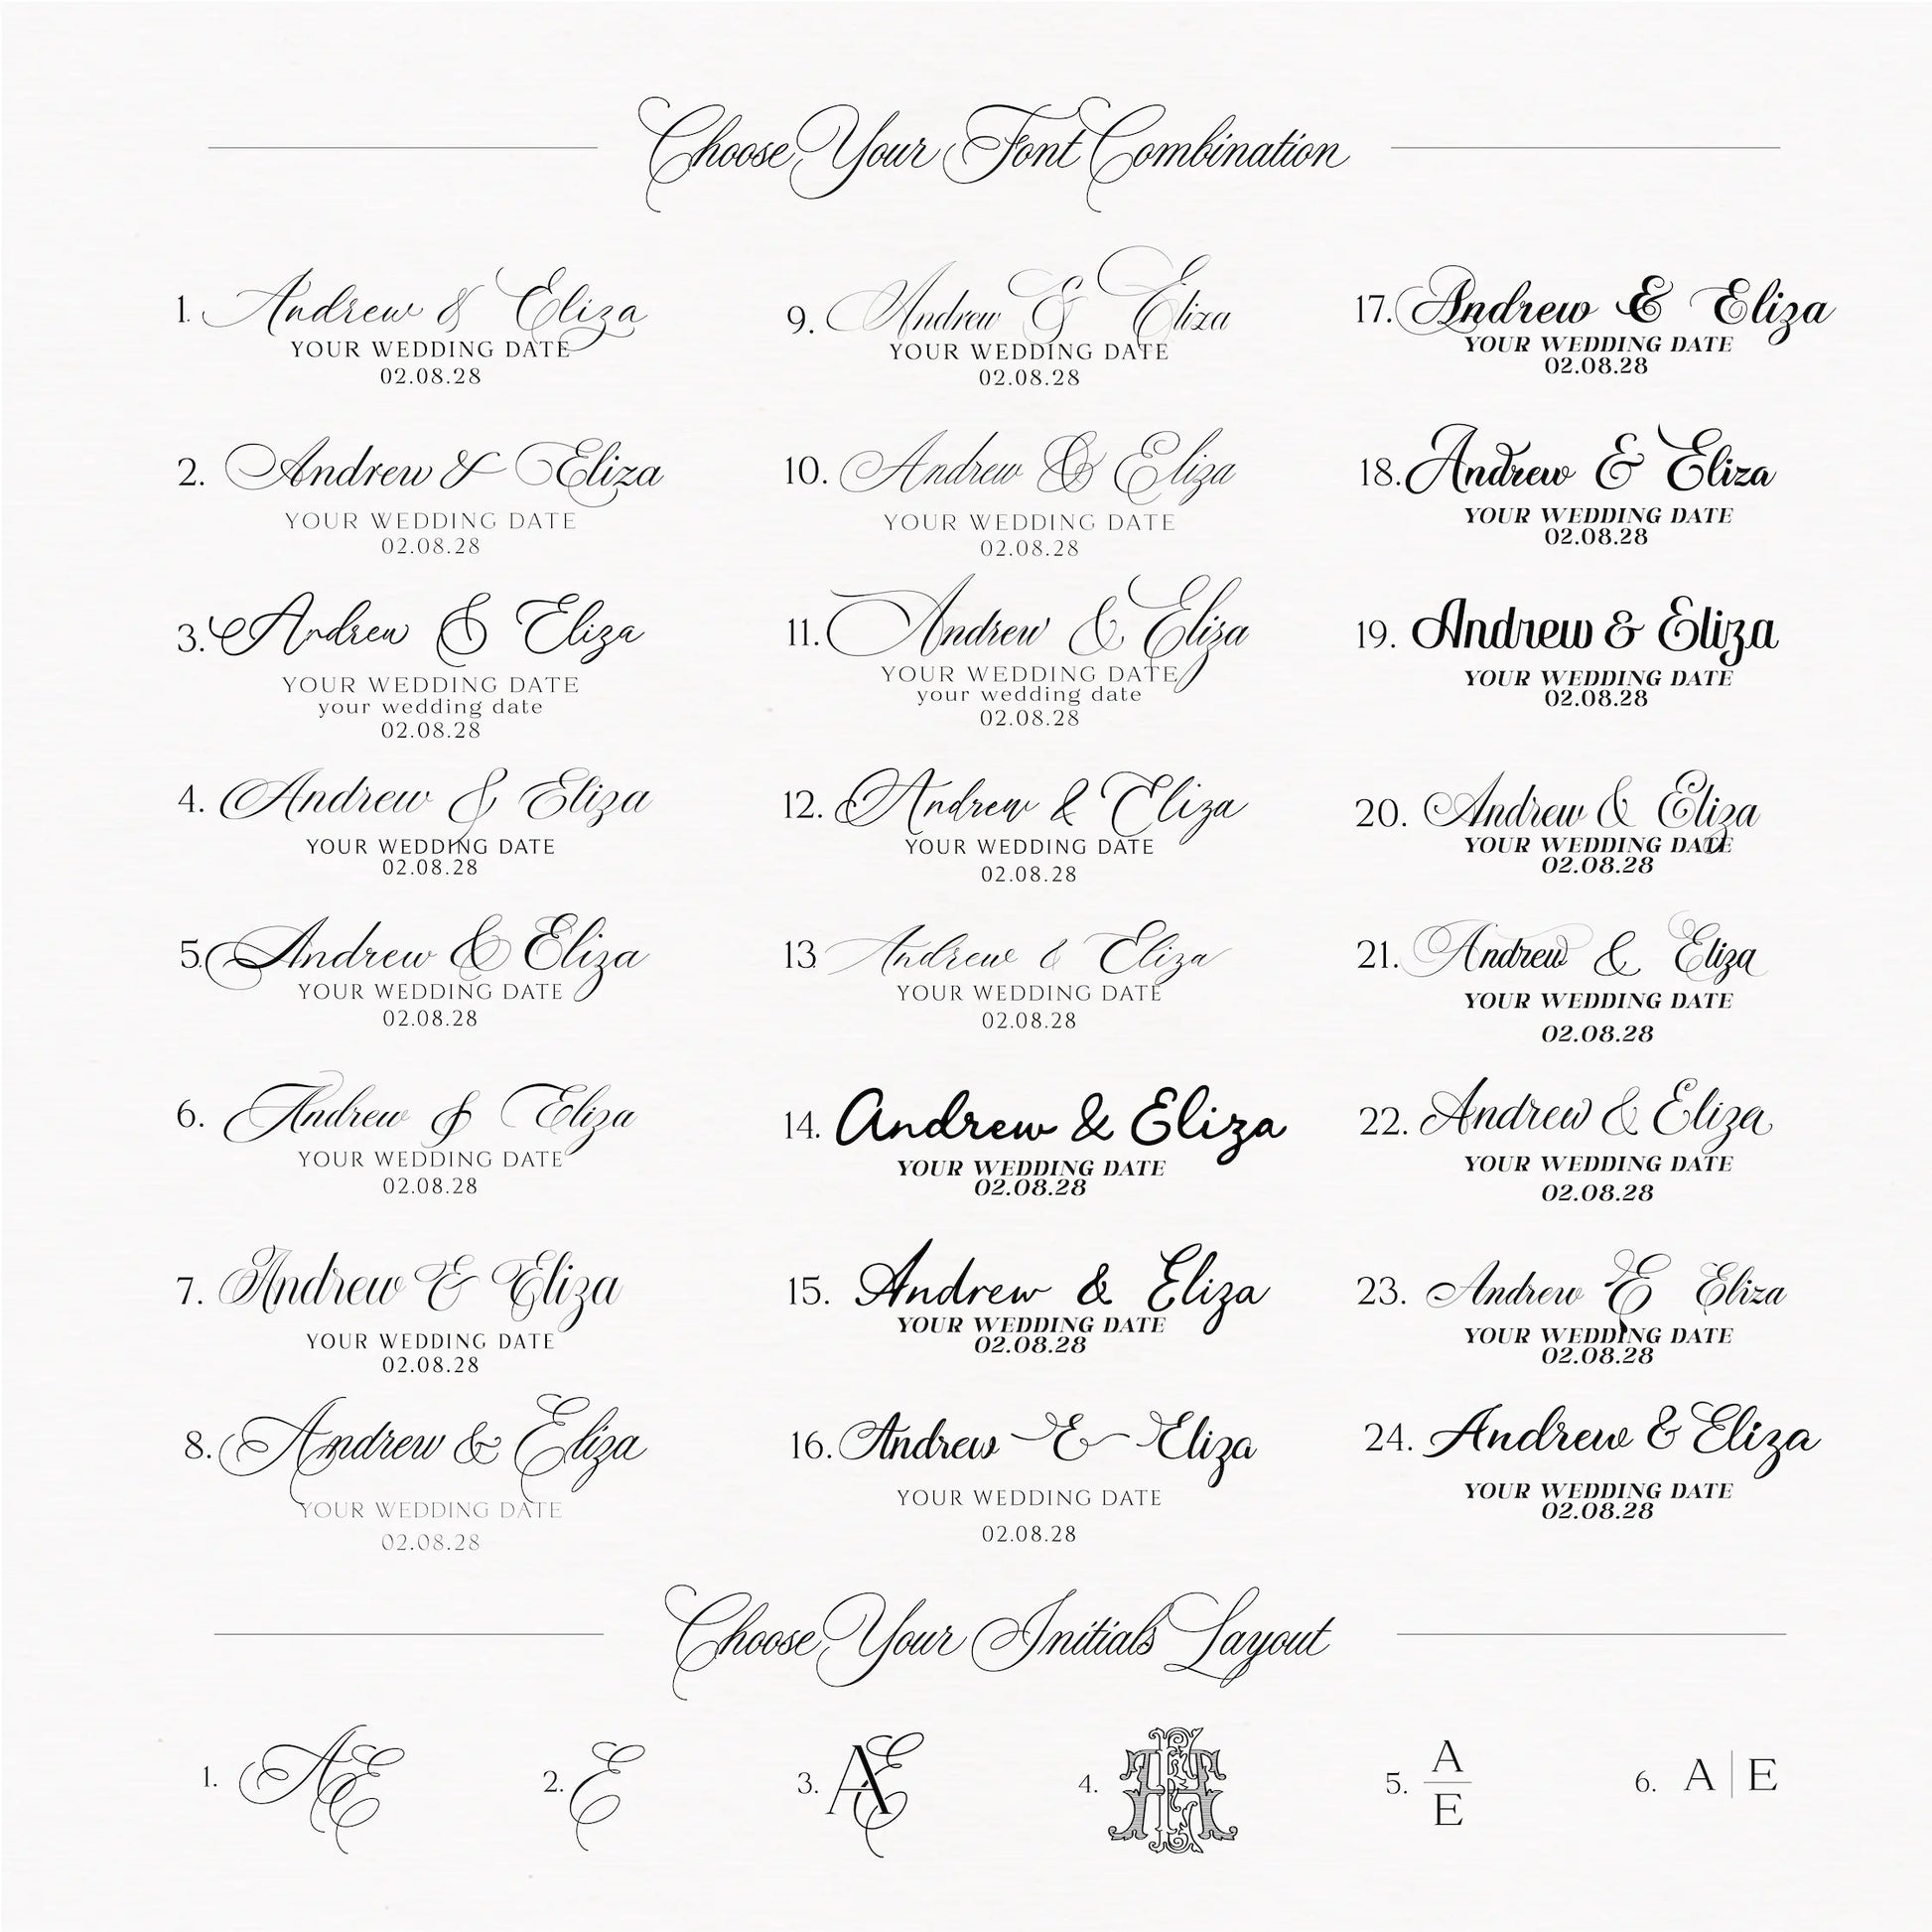 Choose Your Font Combination
1. Andrew & Eliza
YOUR WEDDING DATE
02.08.28
2. Andrew & Eliza
YOUR WEDDING DATE
02.08.28
3. Andrew & Eliza
YOUR WEDDING DATE
your wedding date
02.08.28
4. Andrew & Eliza
YOUR WEDDING DATE
02.08.28
5. Andrew & Eliza
YOUR WEDDING DATE
02.08.28
6. Andrew & Eliza
YOUR WEDDING DATE
02.08.28
7. Andrew & Eliza
YOUR WEDDING DATE
02.08.28
8. Andrew & Eliza
YOUR WEDDING DATE
02.08.28
9. Andrew & Eliza
YOUR WEDDING DATE
02.08.28
10. Andrew & Eliza
YOUR WEDDING DATE
02.08.28
11. Andrew & Eliza
YOUR WEDDING DATE
your wedding date
02.08.28
12. Andrew & Eliza
YOUR WEDDING DATE
02.08.28
13. Andrew & Eliza
YOUR WEDDING DATE
02.08.28
14. Andrew & Eliza
YOUR WEDDING DATE
02.08.28
15. Andrew & Eliza
YOUR WEDDING DATE
02.08.28
16. Andrew & Eliza
YOUR WEDDING DATE
02.08.28
17. Andrew & Eliza
YOUR WEDDING DATE
02.08.28
18. Andrew & Eliza
YOUR WEDDING DATE
02.08.28
19. Andrew & Eliza
YOUR WEDDING DATE
02.08.28
20. Andrew & Eliza
YOUR WEDDING DATE
02.08.28
21. Andrew & Eliza
YOUR WEDDING DATE
02.08.28
22. Andrew & Eliza
YOUR WEDDING DATE
02.08.28
23. Andrew & Eliza
YOUR WEDDING DATE
02.08.28
24. Andrew & Eliza
YOUR WEDDING DATE
02.08.28
Choose Your Initials Layout
1. AE
2. E
3. AE
4.
5. A
E
6. A | E